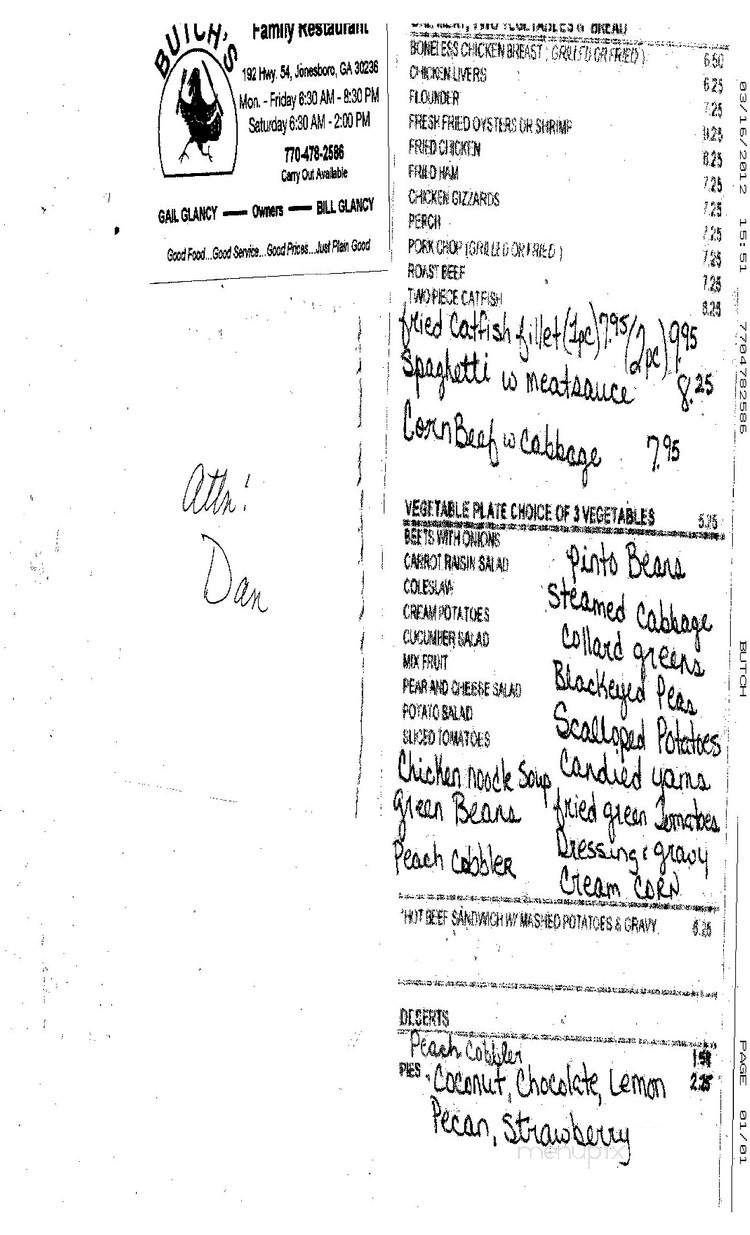 BUTCH'S
Family Restaurant
192 Hwy. 54, Jonesboro, GA 30236
Mon. - Friday 6:30 AM - 8:30 PM
Saturday 6:30 AM - 2:00 PM
770-478-2586
Carry Out Available
GAIL GLANCY — Owners — BILL GLANCY
Good Food...Good Service...Good Prices...Just Plain Good
Attn:
Dan
ONE MEAT, TWO VEGETABLES & BREAD
BONELESS CHICKEN BREAST (GRILLED OR FRIED) 6.50
CHICKEN LIVERS 6.25
FLOUNDER 7.25
FRESH FRIED OYSTERS OR SHRIMP
FRIED CHICKEN 6.25
FRIED HAM 7.25
CHICKEN GIZZARDS 7.25
PERCH 7.25
PORK CHOP (GRILLED OR FRIED) 7.25
ROAST BEEF 7.25
TWO PIECE CATFISH
fried Catfish fillet (1pc) 7.95 / (2pc) 9.95
Spaghetti w meatsauce 8.25
Corn Beef w cabbage 7.95
VEGETABLE PLATE CHOICE OF 3 VEGETABLES 5.25
BEETS WITH ONIONS
CARROT RAISIN SALAD
COLESLAW
CREAM POTATOES
CUCUMBER SALAD
MIX FRUIT
PEAR AND CHEESE SALAD
POTATO SALAD
SLICED TOMATOES
Chicken noodle Soup
green Beans
Peach Cobbler
Pinto Beans
Steamed Cabbage
Collard greens
Blackeyed Peas
Scalloped Potatoes
Candied yams
fried green Tomatoes
Dressing & gravy
Cream CORN
*HOT BEEF SANDWICH W/ MASHED POTATOES & GRAVY 6.25
DESERTS
Peach Cobbler 1.50
PIES Coconut, Chocolate, Lemon 2.25
Pecan, Strawberry
menupix
03/16/2012 15:51 7704782586 BUTCH PAGE 01/01